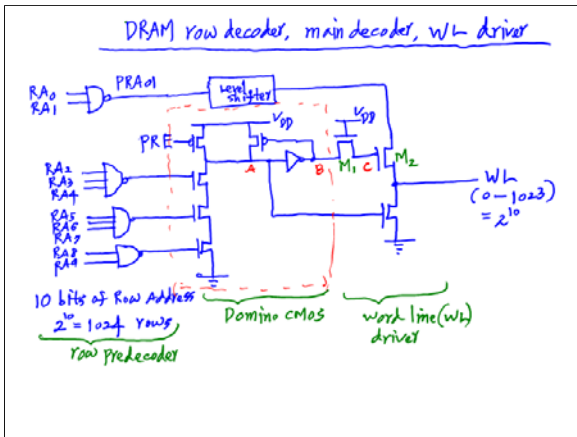 DRAM row decoder, main decoder, WL driver
RA0
RA1
PRA01
Level
shifter
VDD
VDD
PRE
A
B
M1
C
M2
RA2
RA3
RA4
RA5
RA6
RA7
RA8
RA9
WL
(0-1023)
= 2^10
10 bits of Row Address
2^10 = 1024 rows
row predecoder
Domino CMOS
word line (WL)
driver